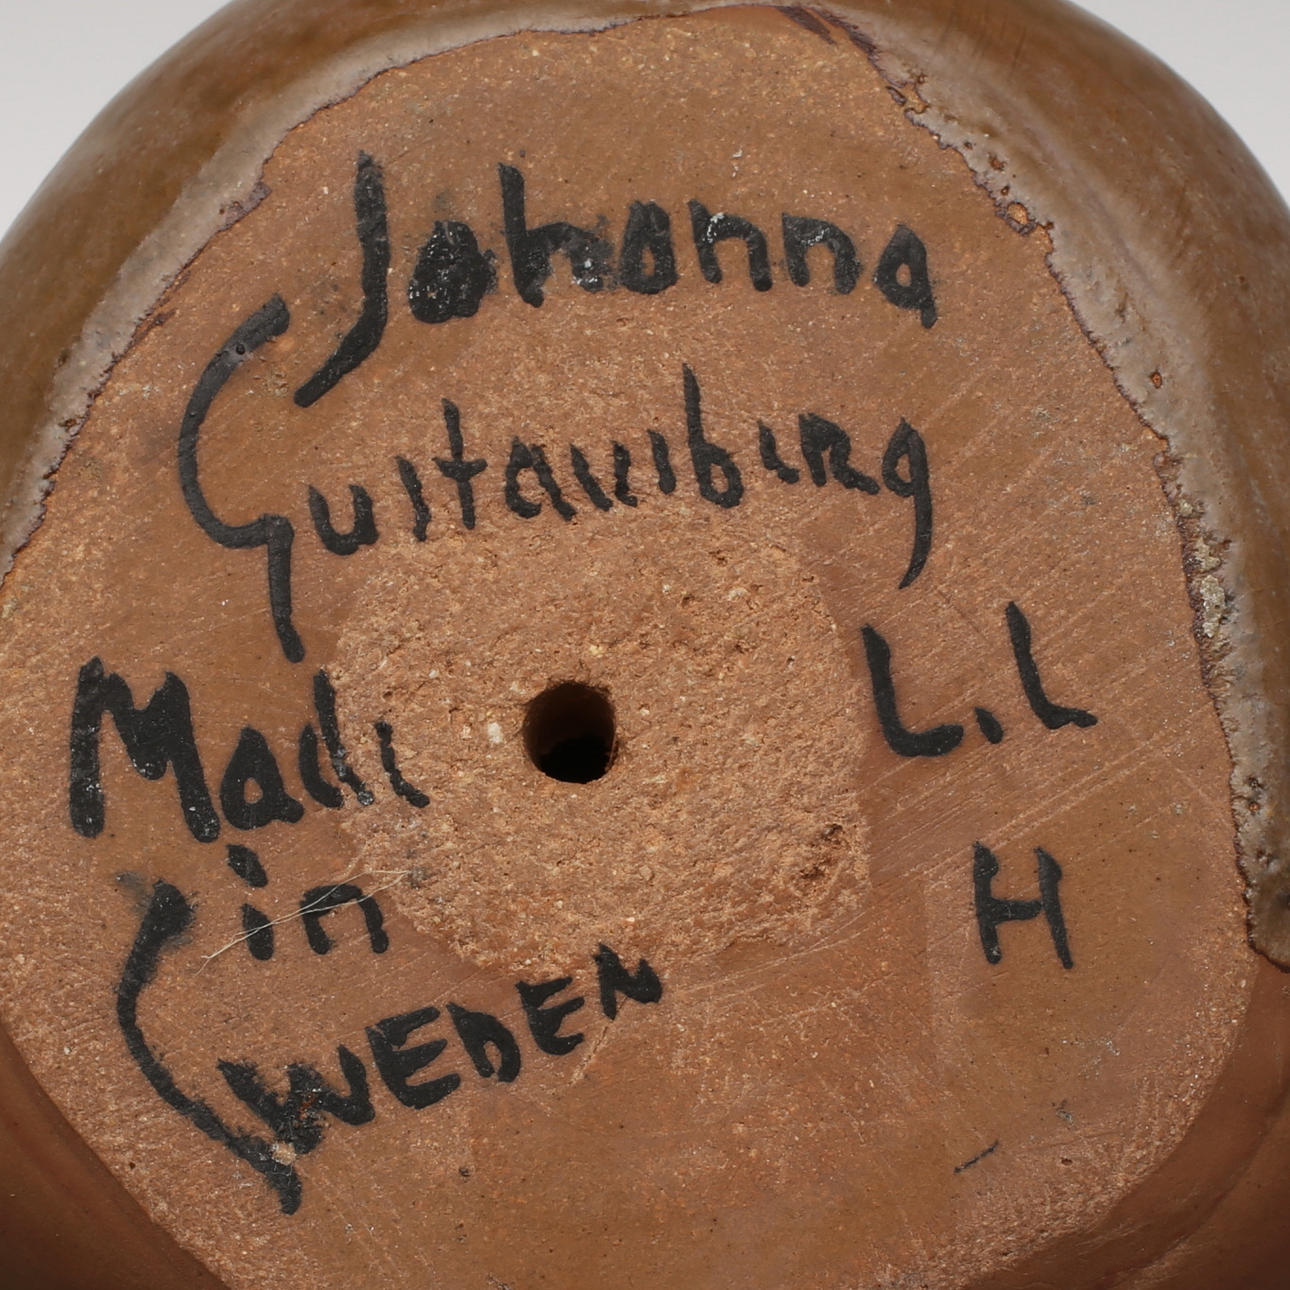 Johanna
Gustavsberg
Made
in
SWEDEN
L.L
H